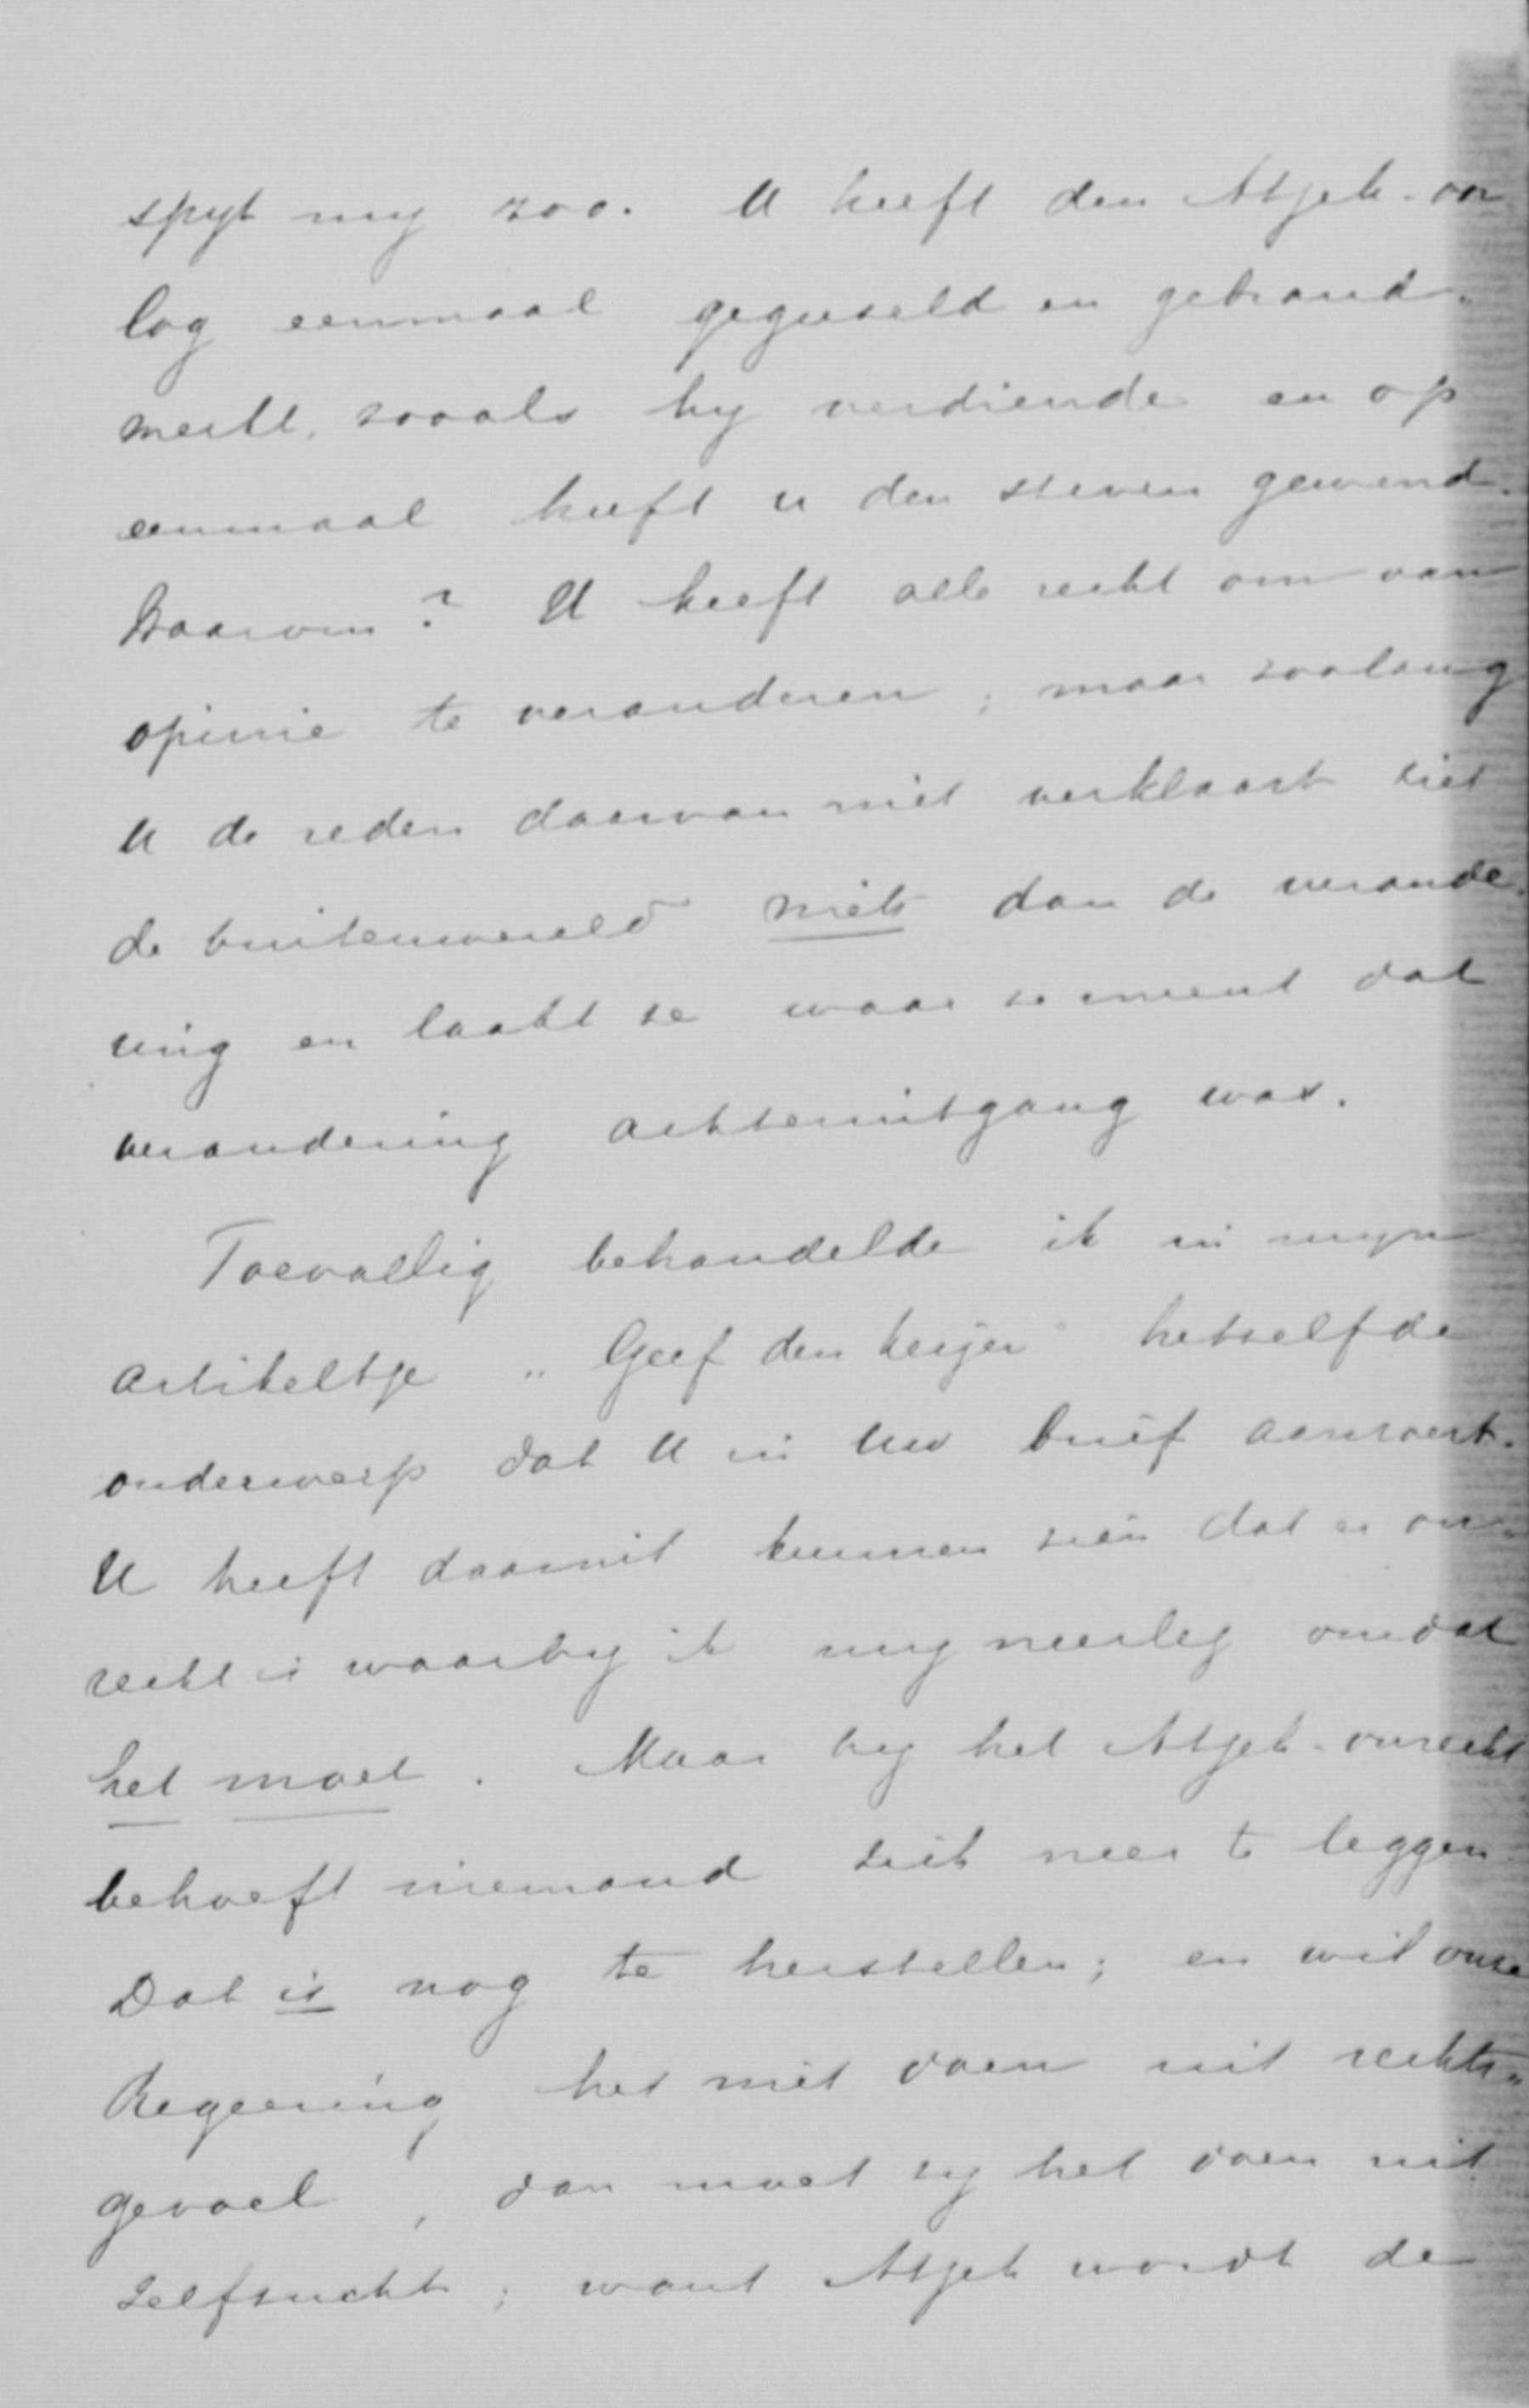 spyt my zoo. U heeft den Atjeh-oor
log eenmaal gegeeseld en gebrand-
merkt, zooals hy verdiende en op
eenmaal heeft u den steven gewend.
Waarom? U heeft alle recht om van
opinie te veranderen; maar zoolang
U de reden daarvan niet verklaart ziet
de buitenwereld niets dan de verande-
ring en laakt ze waar ze meent dat
verandering achteruitgang was.
Toevallig behandelde ik in myn
artikeltje „Geef den keizer" hetzelfde
onderwerp dat U in Uw brief aanroert.
U heeft daaruit kunnen zien dat er on-
recht is waarby ik my neerleg omdat
het moet. Maar by het Atjeh-onrecht
behoeft niemand zich neer te leggen.
Dat is nog te herstellen; en wil onze
Regeering het niet doen uit rechts-
gevoel, dan moet zy het doen uit
zelfzucht; want Atjeh wordt de